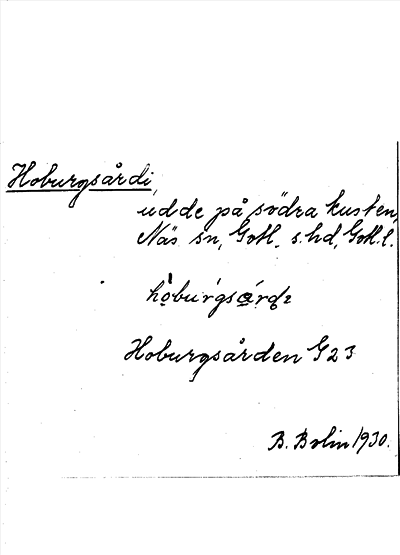 Hoburgsårdi,
udde på södra kusten,
Näs sn, Gotl. s. hd, Gotl. l.
Hoburgsården G23
B. Bolin 1930.